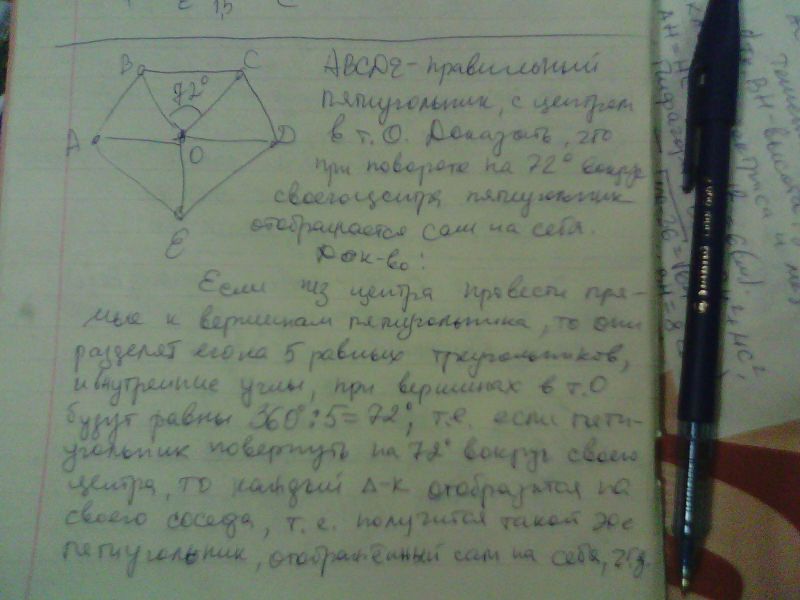 B C
72°
A O D
E
ABCDE - правильный
пятиугольник, с центром
в т. О. Доказать, что
при повороте на 72° вокруг
своего центра пятиугольник
отображается сам на себя.
Док-во:
Если из центра провести пря-
мые к вершинам пятиугольника, то они
разделят его на 5 равных треугольников,
и внутренние углы, при вершинах в т.О
будут равны 360°:5=72°, т.е. если пяти-
угольник повернуть на 72° вокруг своего
центра, то каждый Δ-к отобразится на
своего соседа, т.е. получится такой же
пятиугольник, отображённый сам на себя, чтд.